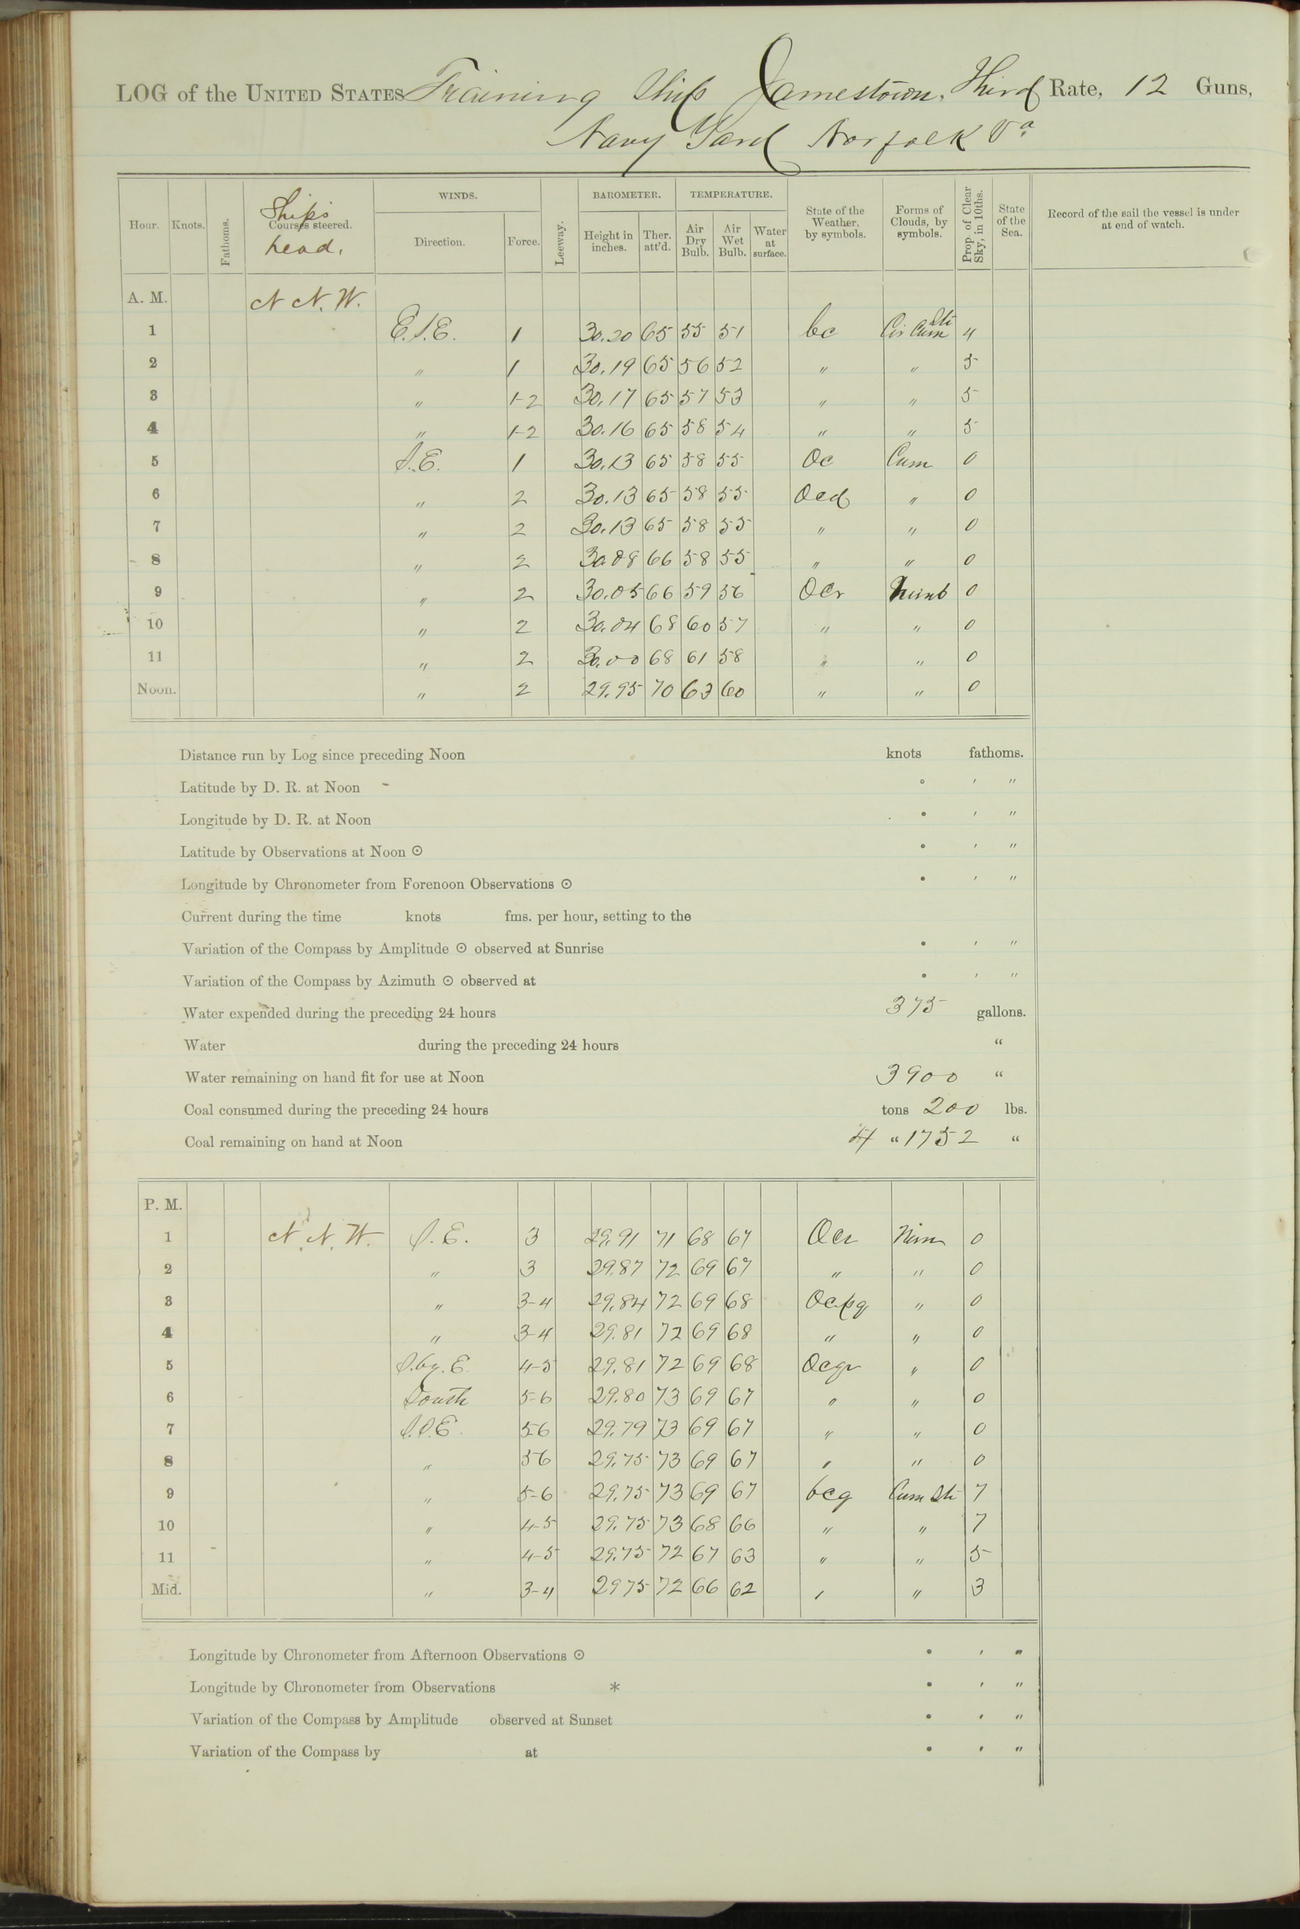 LOG of the UNITED STATES Training Ship Jamestown, Third Rate, 12 Guns,
Navy Yard Norfolk Va
Hour. Knots. Fathoms. Courses steered. Ship's head. WINDS. Direction. Force. Leeway. BAROMETER. Height in inches. Ther. att'd. TEMPERATURE. Air Dry Bulb. Air Wet Bulb. Water at surface. State of the Weather, by symbols. Forms of Clouds, by symbols. Prop. of Clear Sky, in 10ths. State of the Sea. Record of the sail the vessel is under at end of watch.
A. M. N N. W.
1 E.S.E. 1 30.20 65 55 51 bc Cir Cum Sti 4
2 " 1 30.19 65 56 52 " " 5
3 " 1-2 30.17 65 57 53 " " 5
4 " 1-2 30.16 65 58 54 " " 5
5 S.E. 1 30.13 65 58 55 Oc Cum 0
6 " 2 30.13 65 58 55 Ocd " 0
7 " 2 30.13 65 58 55 " " 0
8 " 2 30.08 66 58 55 " " 0
9 " 2 30.05 66 59 56 Ocr Nimb 0
10 " 2 30.04 68 60 57 " " 0
11 " 2 30.00 68 61 58 " " 0
Noon. " 2 29.95 70 63 60 " " 0
Distance run by Log since preceding Noon knots fathoms.
Latitude by D. R. at Noon ° ' "
Longitude by D. R. at Noon ° ' "
Latitude by Observations at Noon ☉ ° ' "
Longitude by Chronometer from Forenoon Observations ☉ ° ' "
Current during the time knots fms. per hour, setting to the
Variation of the Compass by Amplitude ☉ observed at Sunrise ° ' "
Variation of the Compass by Azimuth ☉ observed at ° ' "
Water expended during the preceding 24 hours 375 gallons.
Water during the preceding 24 hours "
Water remaining on hand fit for use at Noon 3900 "
Coal consumed during the preceding 24 hours tons 200 lbs.
Coal remaining on hand at Noon 4 " 1752 "
P. M.
1 N. N. W. S. E. 3 29.91 71 68 67 Ocr Nim 0
2 " 3 29.87 72 69 67 " " 0
3 " 3-4 29.84 72 69 68 Ocpq " 0
4 " 3-4 29.81 72 69 68 " " 0
5 S.by. E. 4-5 29.81 72 69 68 Ocqr " 0
6 South 5-6 29.80 73 69 67 " " 0
7 S.S.E. 56 29.79 73 69 67 " " 0
8 " 56 29.75 73 69 67 " " 0
9 " 5-6 29.75 73 69 67 bcq Cum Sti 7
10 " 4-5 29.75 73 68 66 " " 7
11 " 4-5 29.75 72 67 63 " " 5
Mid. " 3-4 2975 72 66 62 " " 3
Longitude by Chronometer from Afternoon Observations ☉ ° ' "
Longitude by Chronometer from Observations * ° ' "
Variation of the Compass by Amplitude observed at Sunset ° ' "
Variation of the Compass by at ° ' "